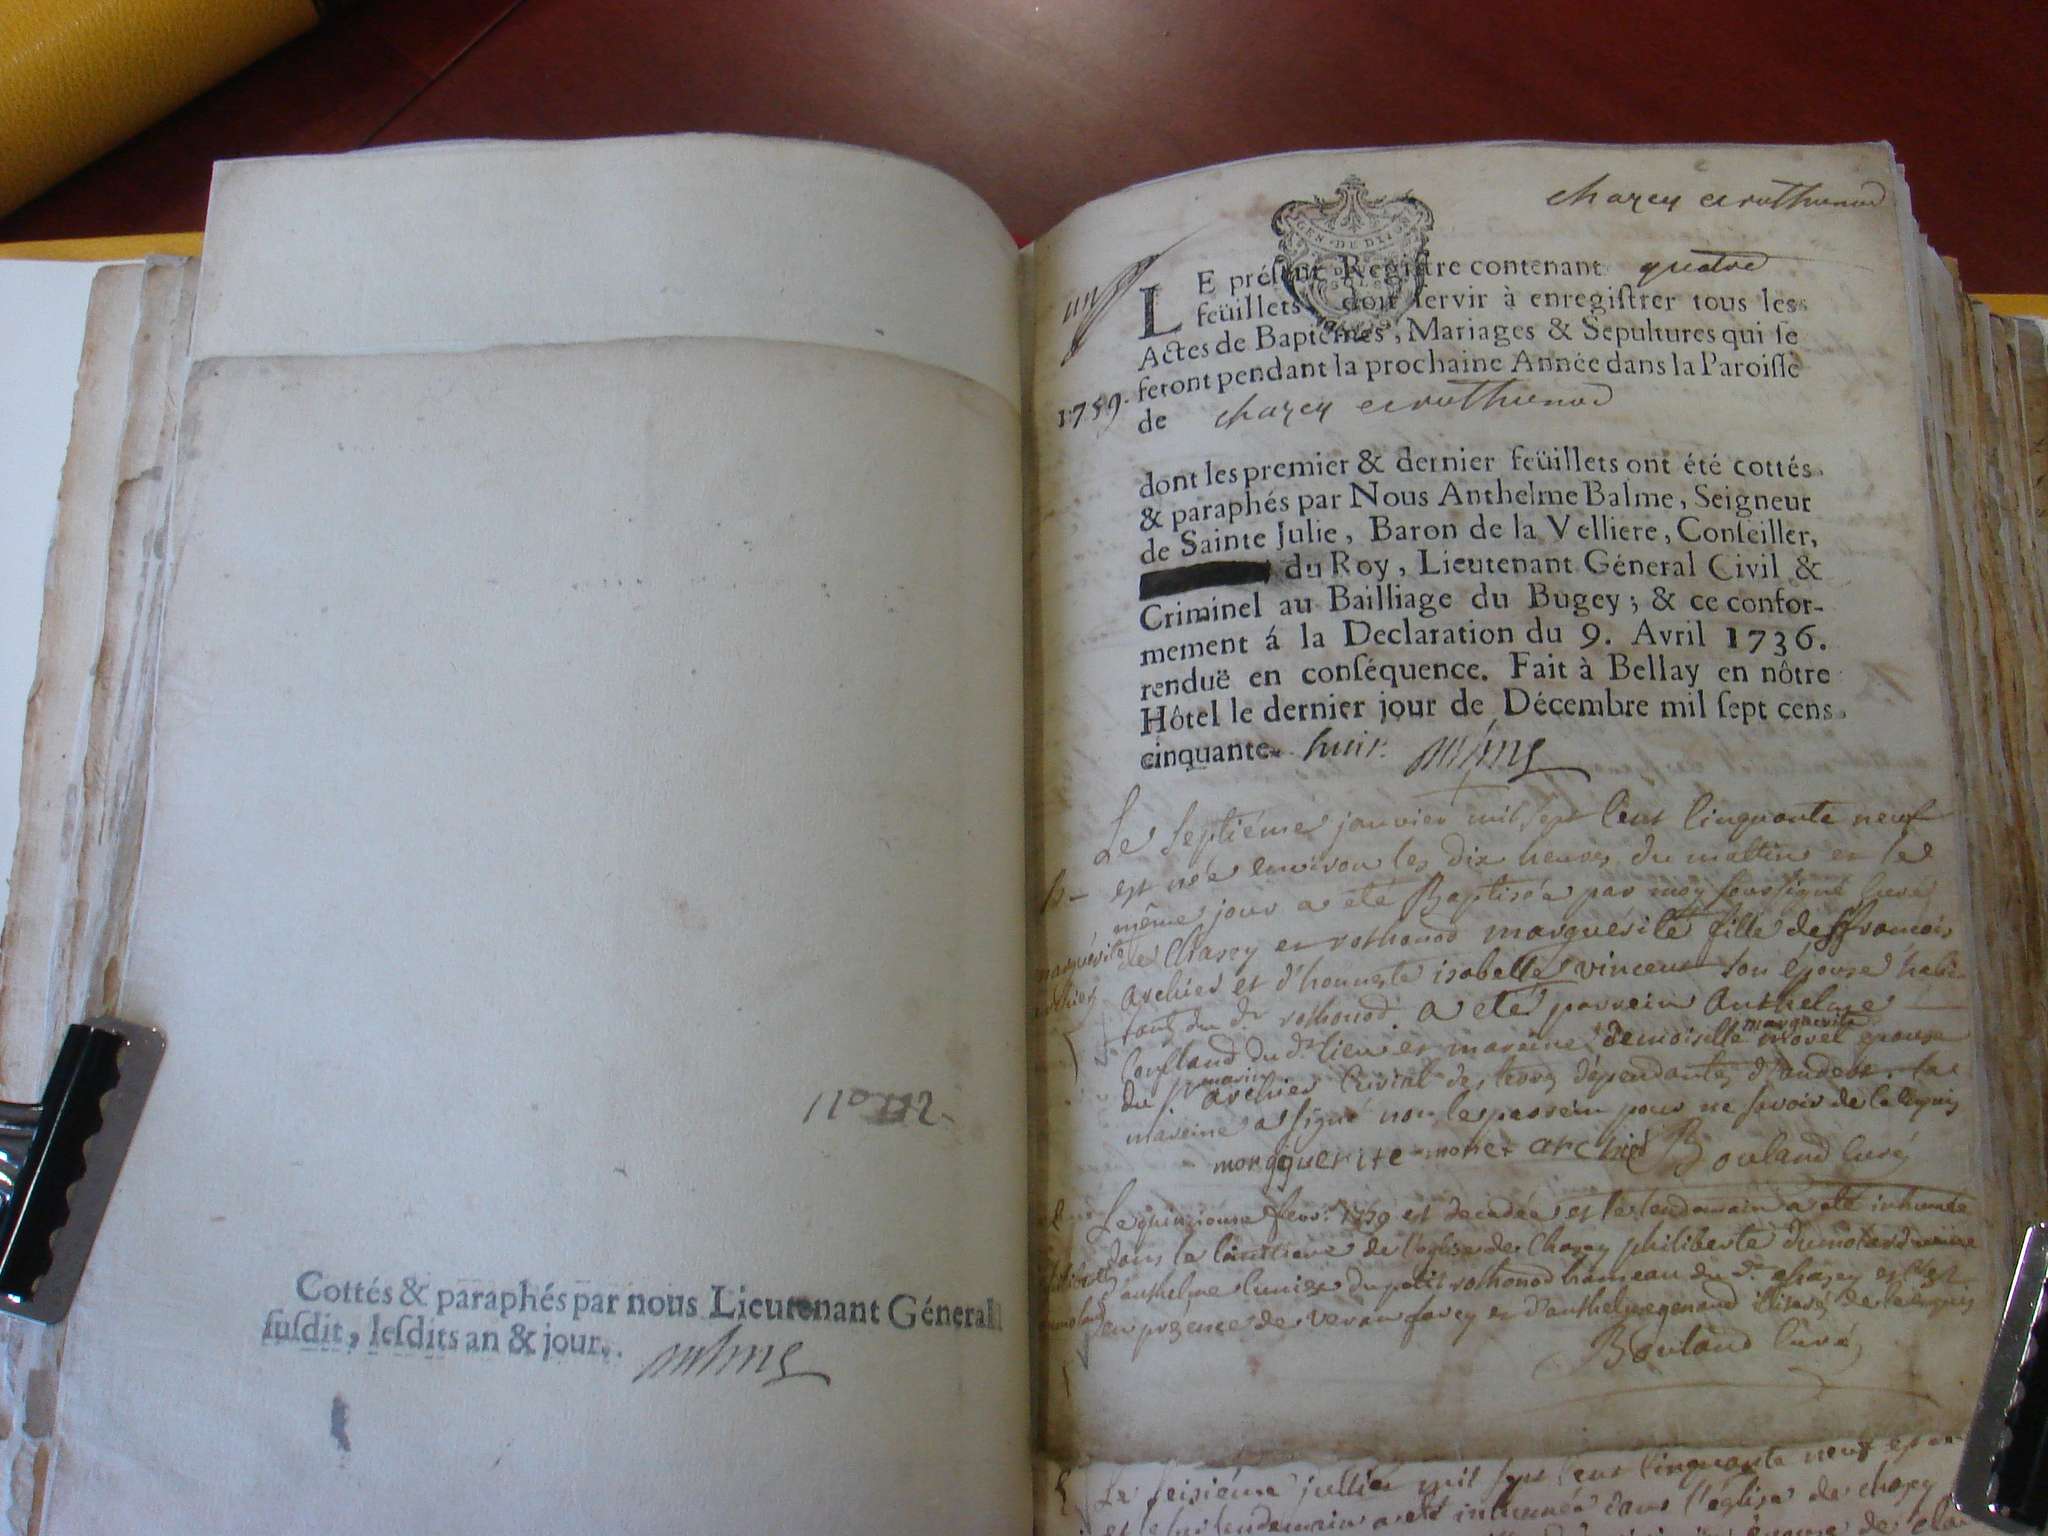 Cottés & paraphés par nous Lieutenant Géneral
ſuſdit, leſdits an & jour.
chazey et rothonod
un
GEN·DE DIJON
LE préſent Regiſtre contenant quatre
feüillets, doit ſervir à enregiſtrer tous les
Actes de Baptêmes, Mariages & Sepultures qui ſe
feront pendant la prochaine Année dans la Paroiſſe
1759.
de chazey et rothonod
dont les premier & dernier feüillets ont été cottés
& paraphés par Nous Anthelme Balme, Seigneur
de Sainte Julie, Baron de la Velliere, Conſeiller,
du Roy, Lieutenant Géneral Civil &
Criminel au Bailliage du Bugey; & ce confor-
mement á la Declaration du 9. Avril 1736.
renduë en conſéquence. Fait à Bellay en nôtre
Hôtel le dernier jour de Décembre mil ſept cens
cinquante huit.
Le Septiéme janvier mil sept Cent Cinquante neuf
est née environ les dix heures du mattin et le
même jour a été Baptisée par moy soussigné Curé
de Chazey et rothonod marguérite fille de ffrancois
archier et d'honneste isabelle vincent son épouse habi
tants du dt rothonod a eté parrein Anthelme
Coufland du dt lieu et mareine demoiselle marguerite morel epouse
du Sr marin archier Curial des terres dépendantes d'andert. la
mareine a signé non le parrein pour ne savoir de ce enquis
margguerite morel archier Bouland Curé
Le quinzieme fevr. 1759 est decedée et le lendemain a été inhumée
dans le Cimetiere de l'eglise de Chazey philiberte dumolard veuve
d'anthelme Cunise du petit rothonod hameau du dt chazey et c'est
en présence de veran farcy et d'anthelme genaud illiterés de ce enquis
Bouland Curé
Le Seisiéme juillet mil sept Cent Cinquante neuf est
et le lendemain a été inhumée dans l'église de chazey